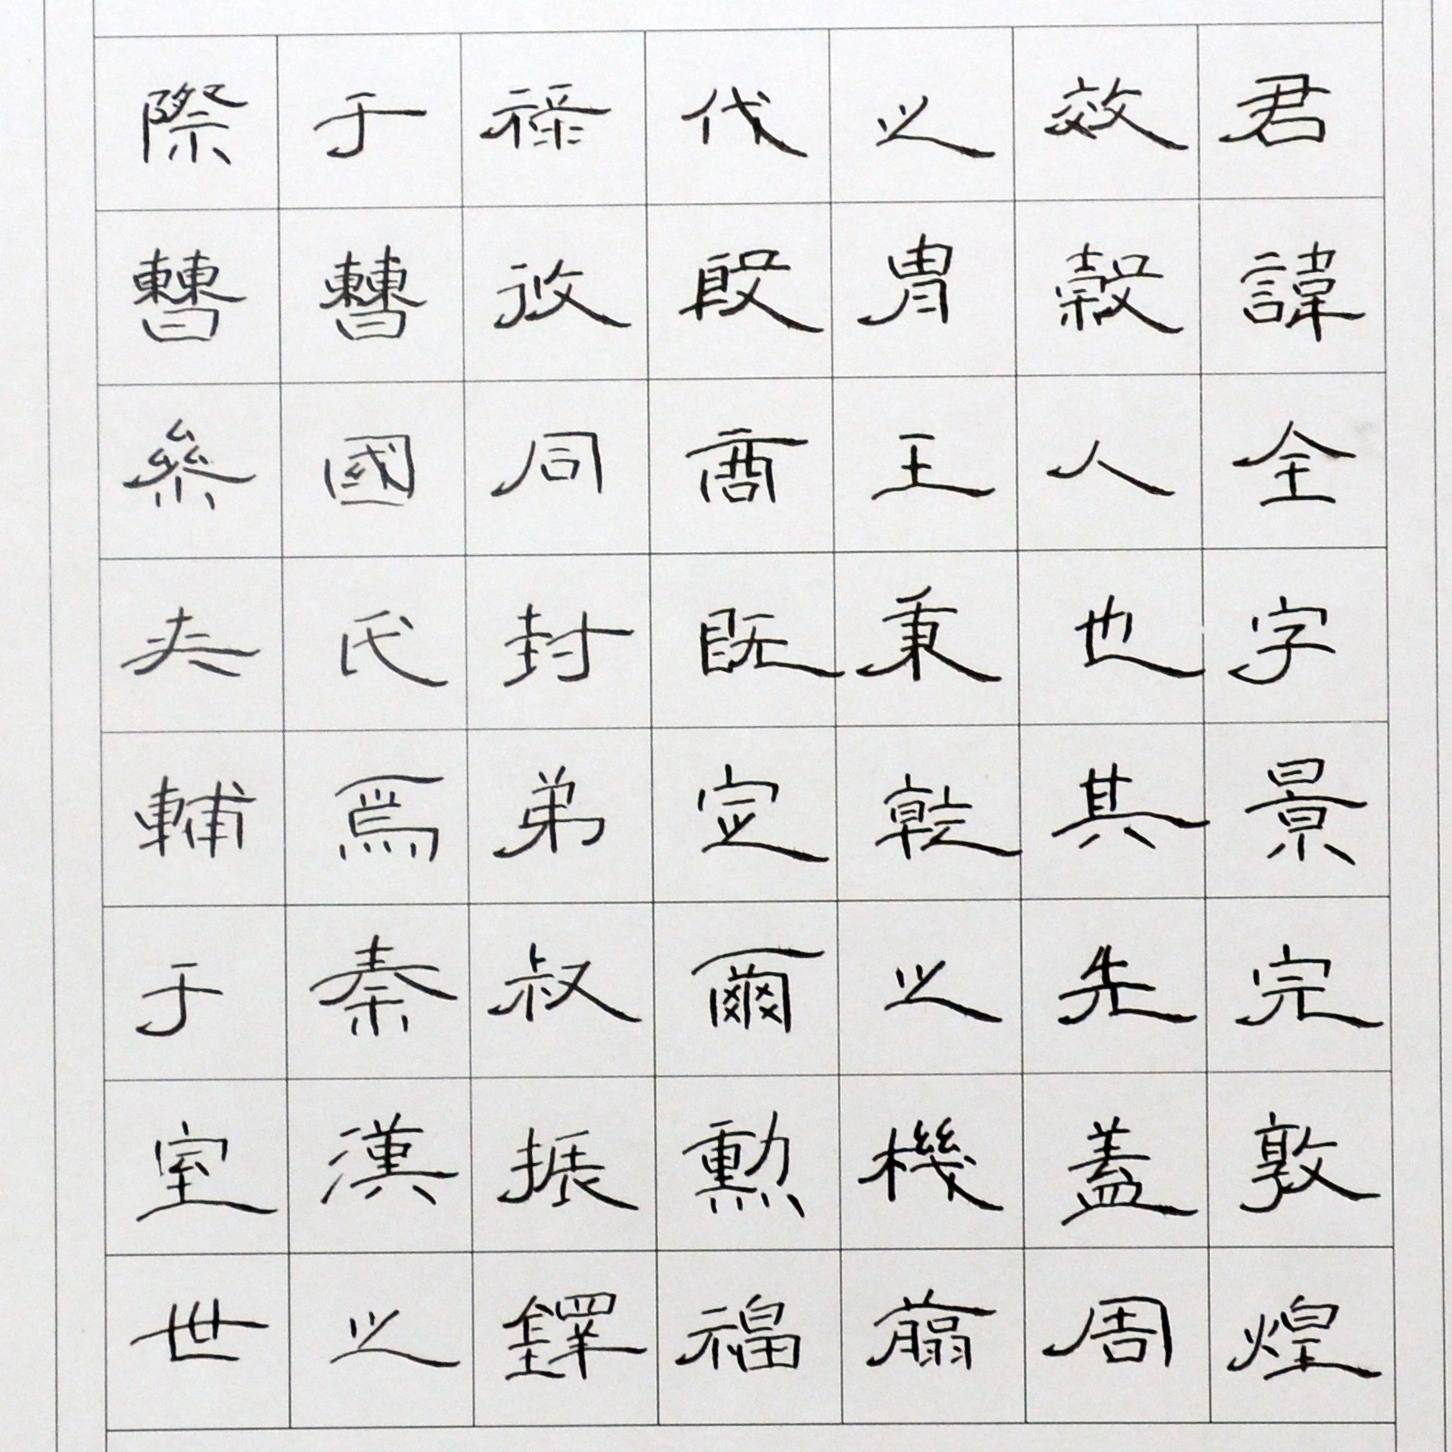 君諱全字景完敦煌
效穀人也其先蓋周
之胄王秉乾之機翦
代殷商既定爾勳福
祿攸同封弟叔振鐸
于曹國氏焉秦漢之
際曹參夾輔于室世